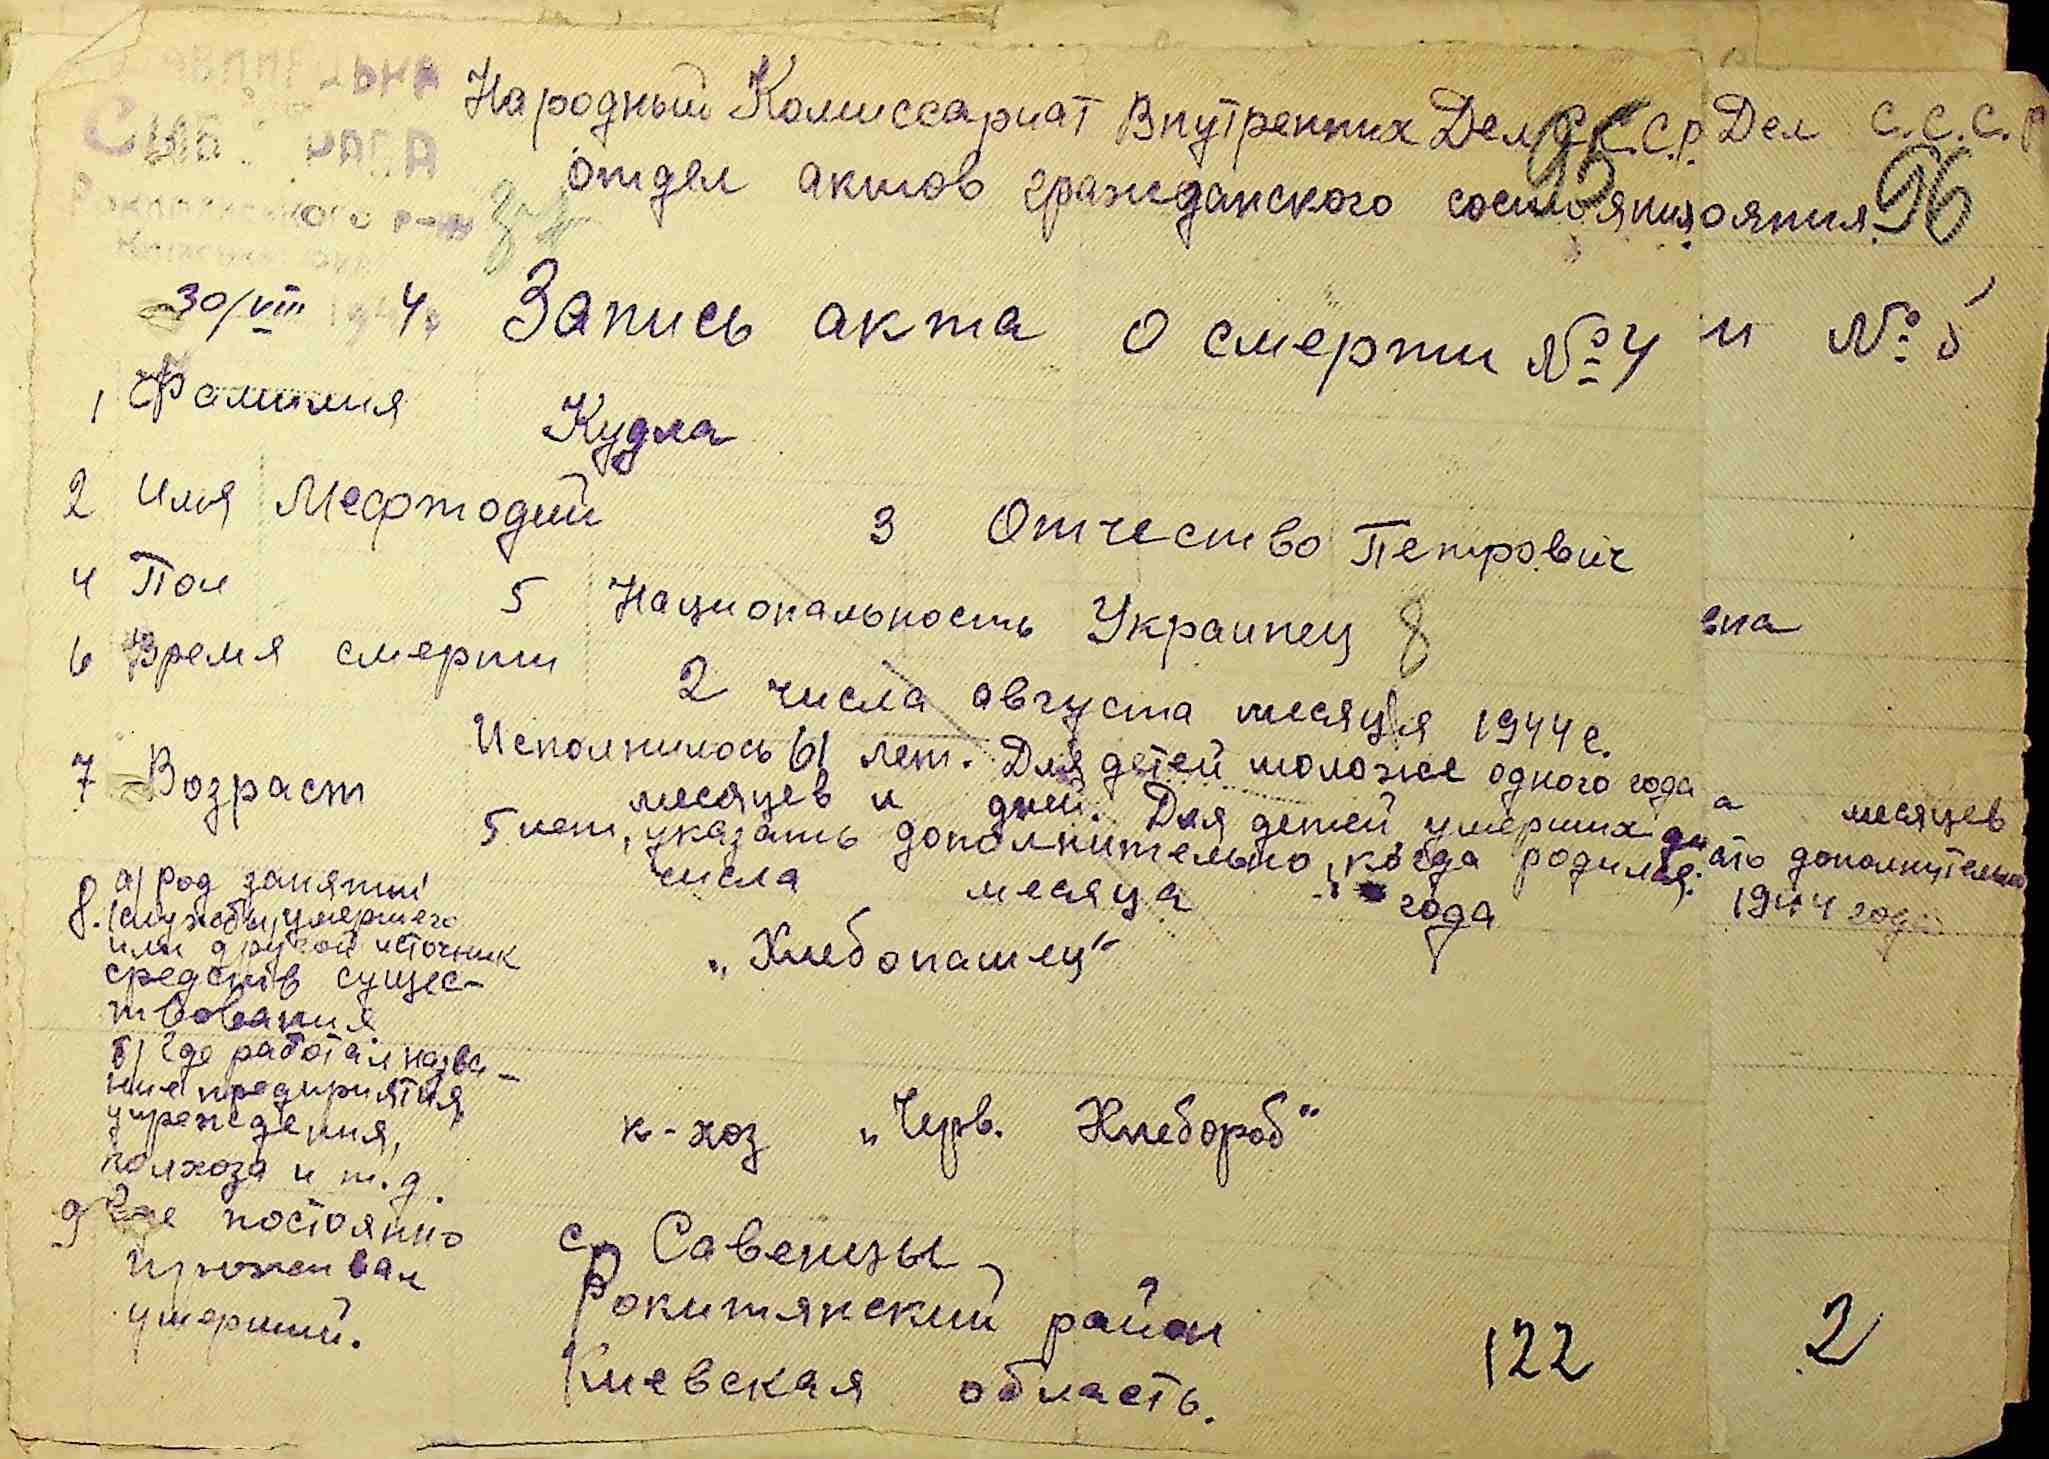 Народный Комиссариат Внутренних Дел С.С.С.Р. Дел С.С.С.Р
95 96
отдел актов гражданского состояния ояния
30/VIII 4 Запись акта о смерти №4 и № 5
1 Фамилия Кудла
2 Имя Мефтодий 3 Отчество Петрович
4 Пол 5 Национальность Украинец 8 вна
6 Время смерти 2 числа августа месяця 1944 г.
7 Возраст Исполнилось 61 лет. Для детей моложе одного года а месяцев
месяцев и дней. Для детей умерших до ать дополнительно
5 лет, указать дополнительно, когда родился: 1944 года
числа месяца года
8. а) род занятий
(службы) умершего
или другой источник
средств сущес-
твования
„Хлебопашец“
б) где работал назва-
ние предприятия,
учреждения,
колхоза и т.д.
к-хоз „Черв. Хлебороб“
9 Где постоянно
проживал
умерший.
с. Савенцы
Рокитянский район
Киевская область.
122 2